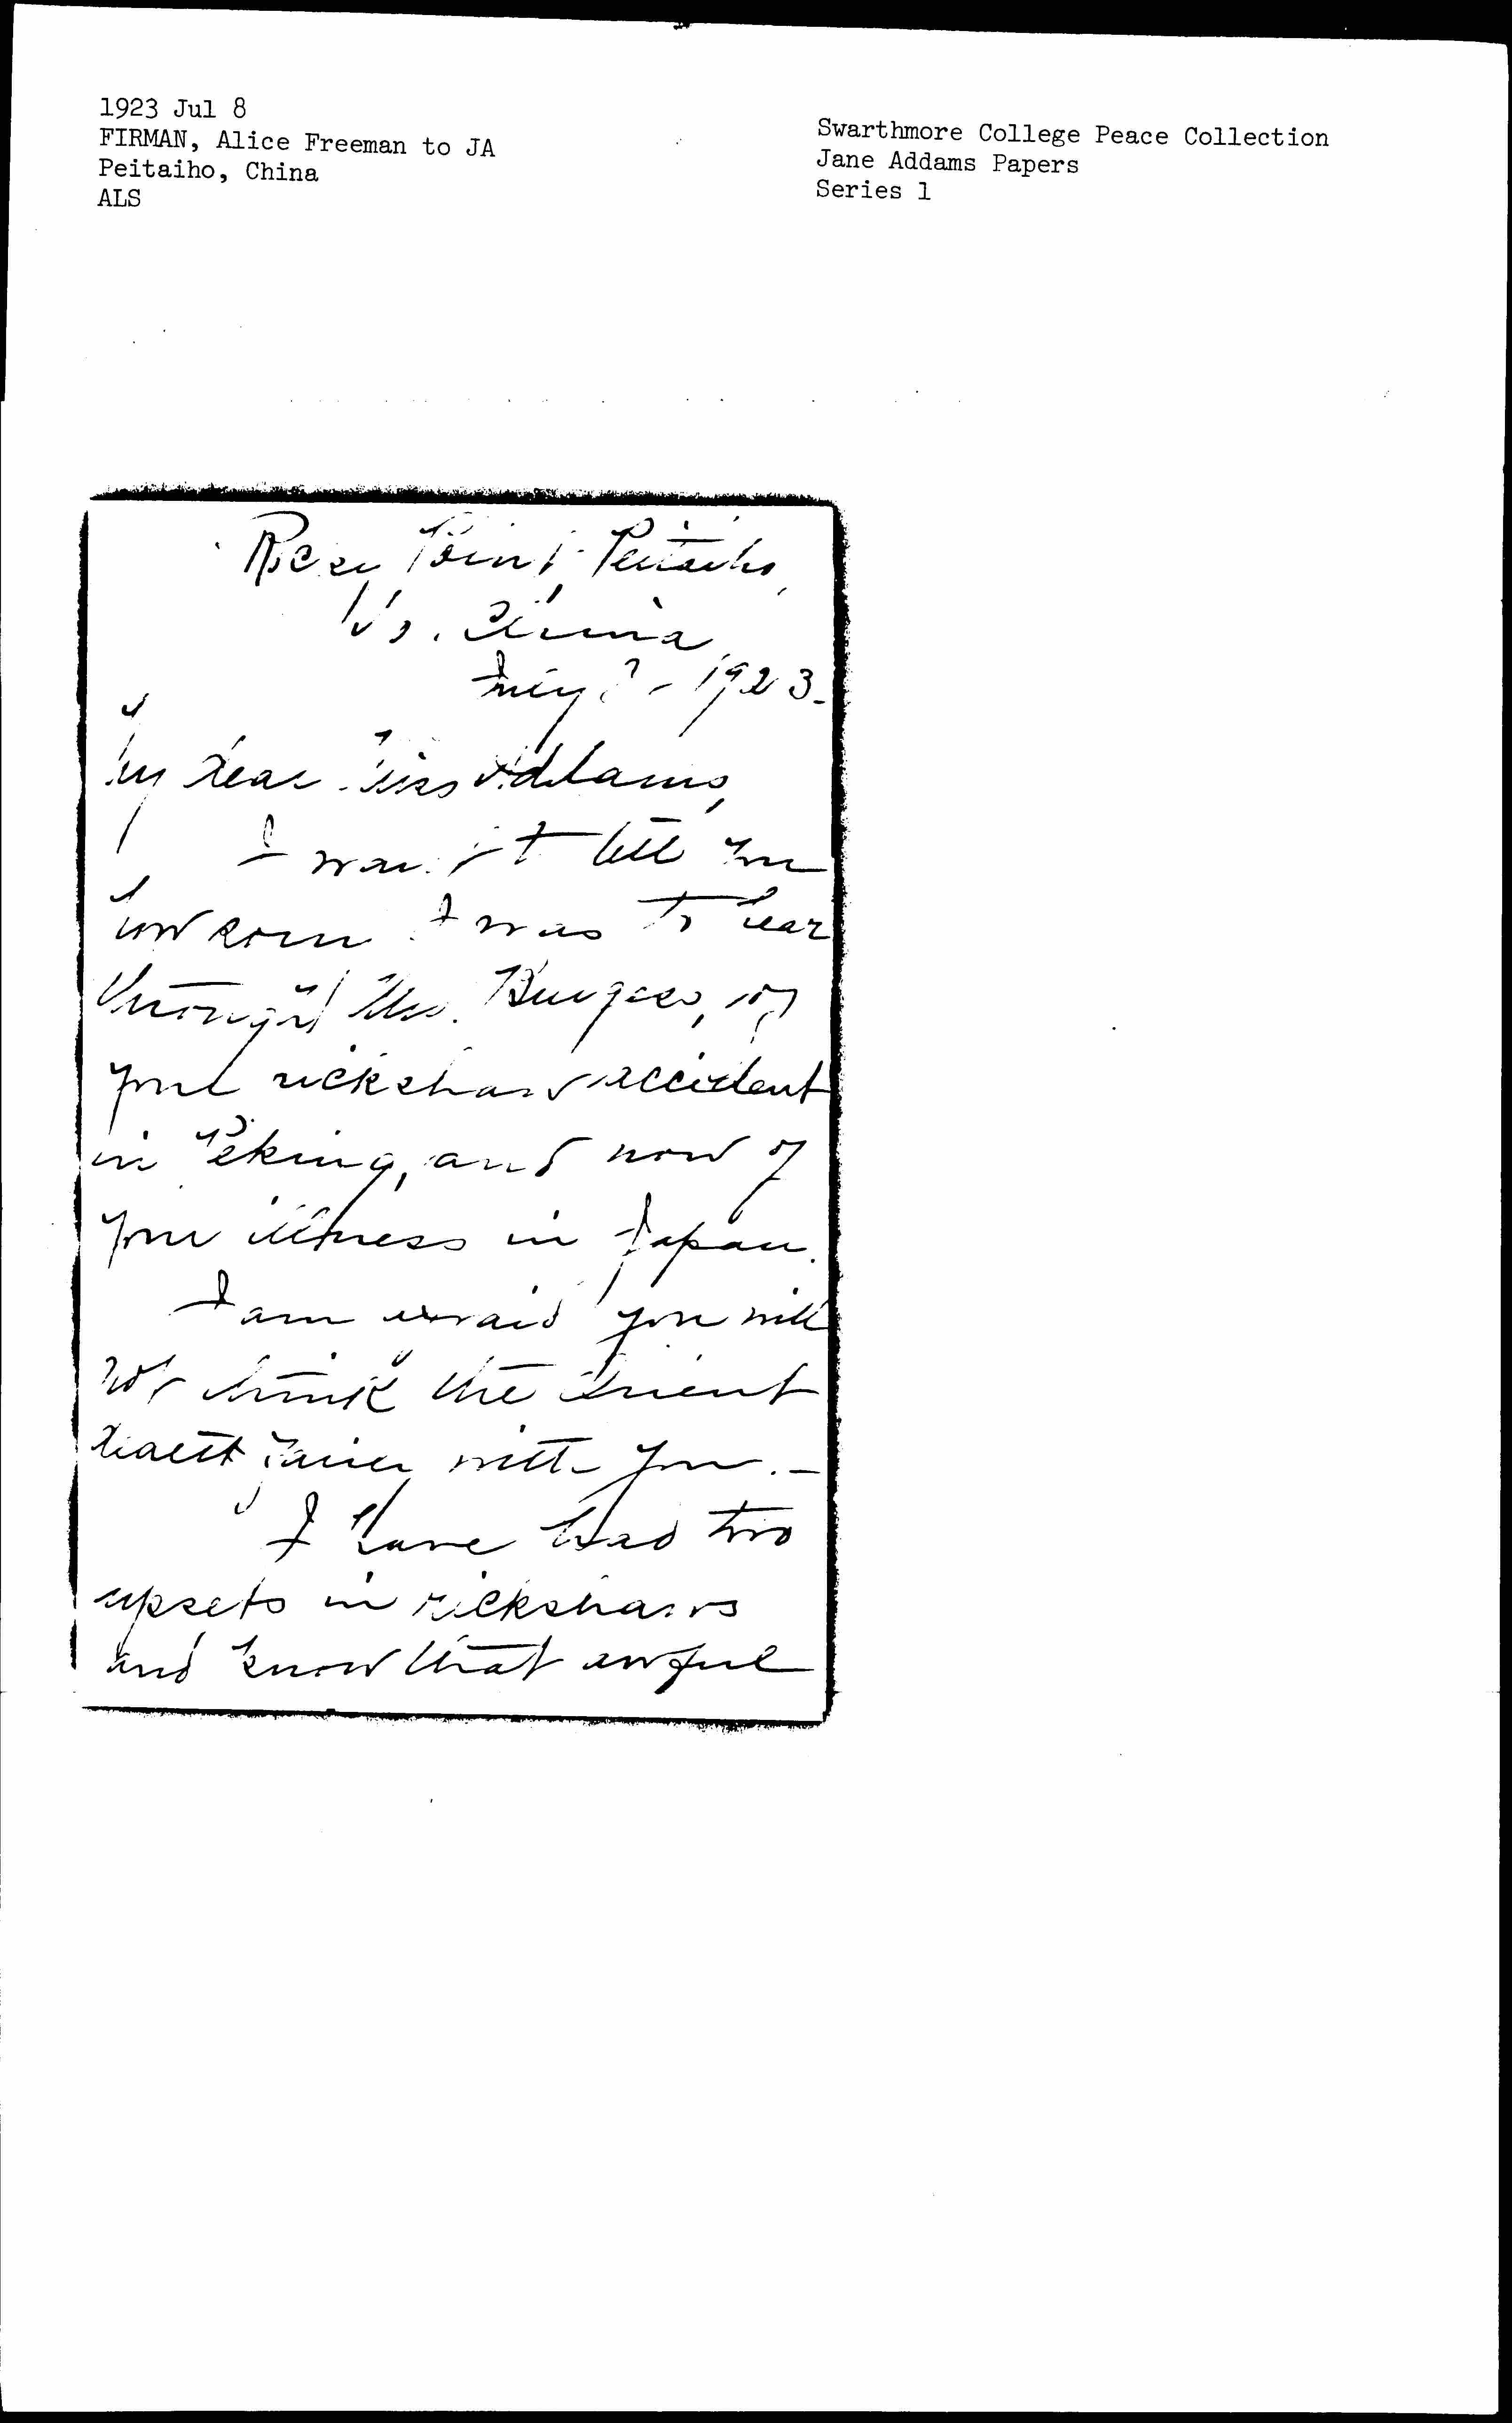 1923 Jul 8
FIRMAN, Alice Freeman to JA
Peitaiho, China
ALS
Swarthmore College Peace Collection
Jane Addams Papers
Series 1
Rocky Point, Peitaiho,
No. China
July 8 - 1923.
My dear Miss Addams,
I want to tell you
how sorry I was to hear
through Mrs. Burgess, of
your rickshaw accident
in Peking, and now of
your illness in Japan.
I am afraid you will
not think the Orient
dealt fairly with you. -
I have had two
upsets in rickshaws
and know that awful